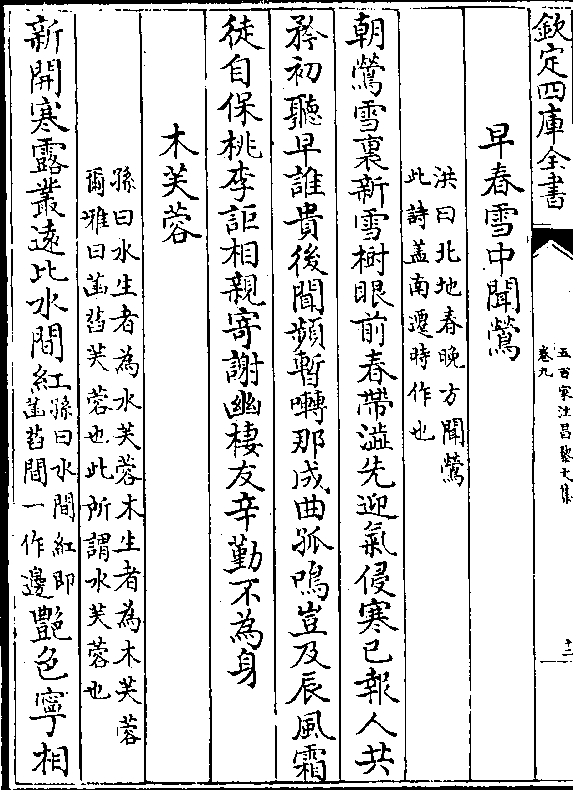 欽定四庫全書
五百家注昌黎文集
卷九
十二
早春雪中聞鶯
洪曰北地春晚方聞鶯
此詩蓋南遷時作也
朝鶯雪裏新雪樹眼前春帶澁先迎氣侵寒已報人共
矜初聽早誰貴後聞頻暫囀那成曲孤鳴豈及辰風霜
徒自保桃李詎相親寄謝幽棲友辛勤不為身
木芙蓉
孫曰水生者為水芙蓉木生者為木芙蓉
爾雅曰菡萏芙蓉也此所謂水芙蓉也
新開寒露叢逺比水間紅孫曰水間紅即菡萏間一作邊艷色寧相